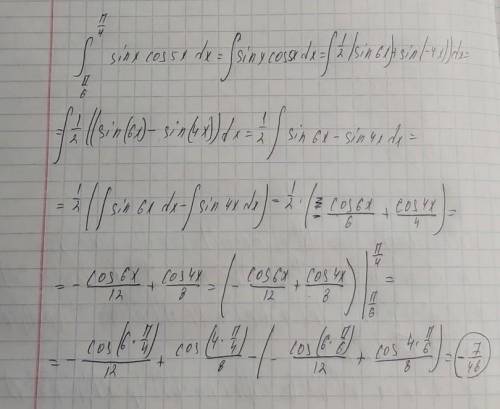 ∫_{π/6}^{π/4} sinx cos5x dx = ∫ sinx cos5x dx = ∫ 1/2 (sin6x + sin(-4x)) dx =
= ∫ 1/2 ((sin(6x) - sin(4x)) dx = 1/2 ∫ sin6x - sin4x dx =
= 1/2 (∫ sin6x dx - ∫ sin4x dx) = 1/2 · (- cos6x/6 + cos4x/4) =
= - cos6x/12 + cos4x/8 = (- cos6x/12 + cos4x/8) |_{π/6}^{π/4} =
= - cos(6·π/4)/12 + cos(4·π/4)/8 - (- cos(6·π/6)/12 + cos 4·π/6)/8) = - 7/46